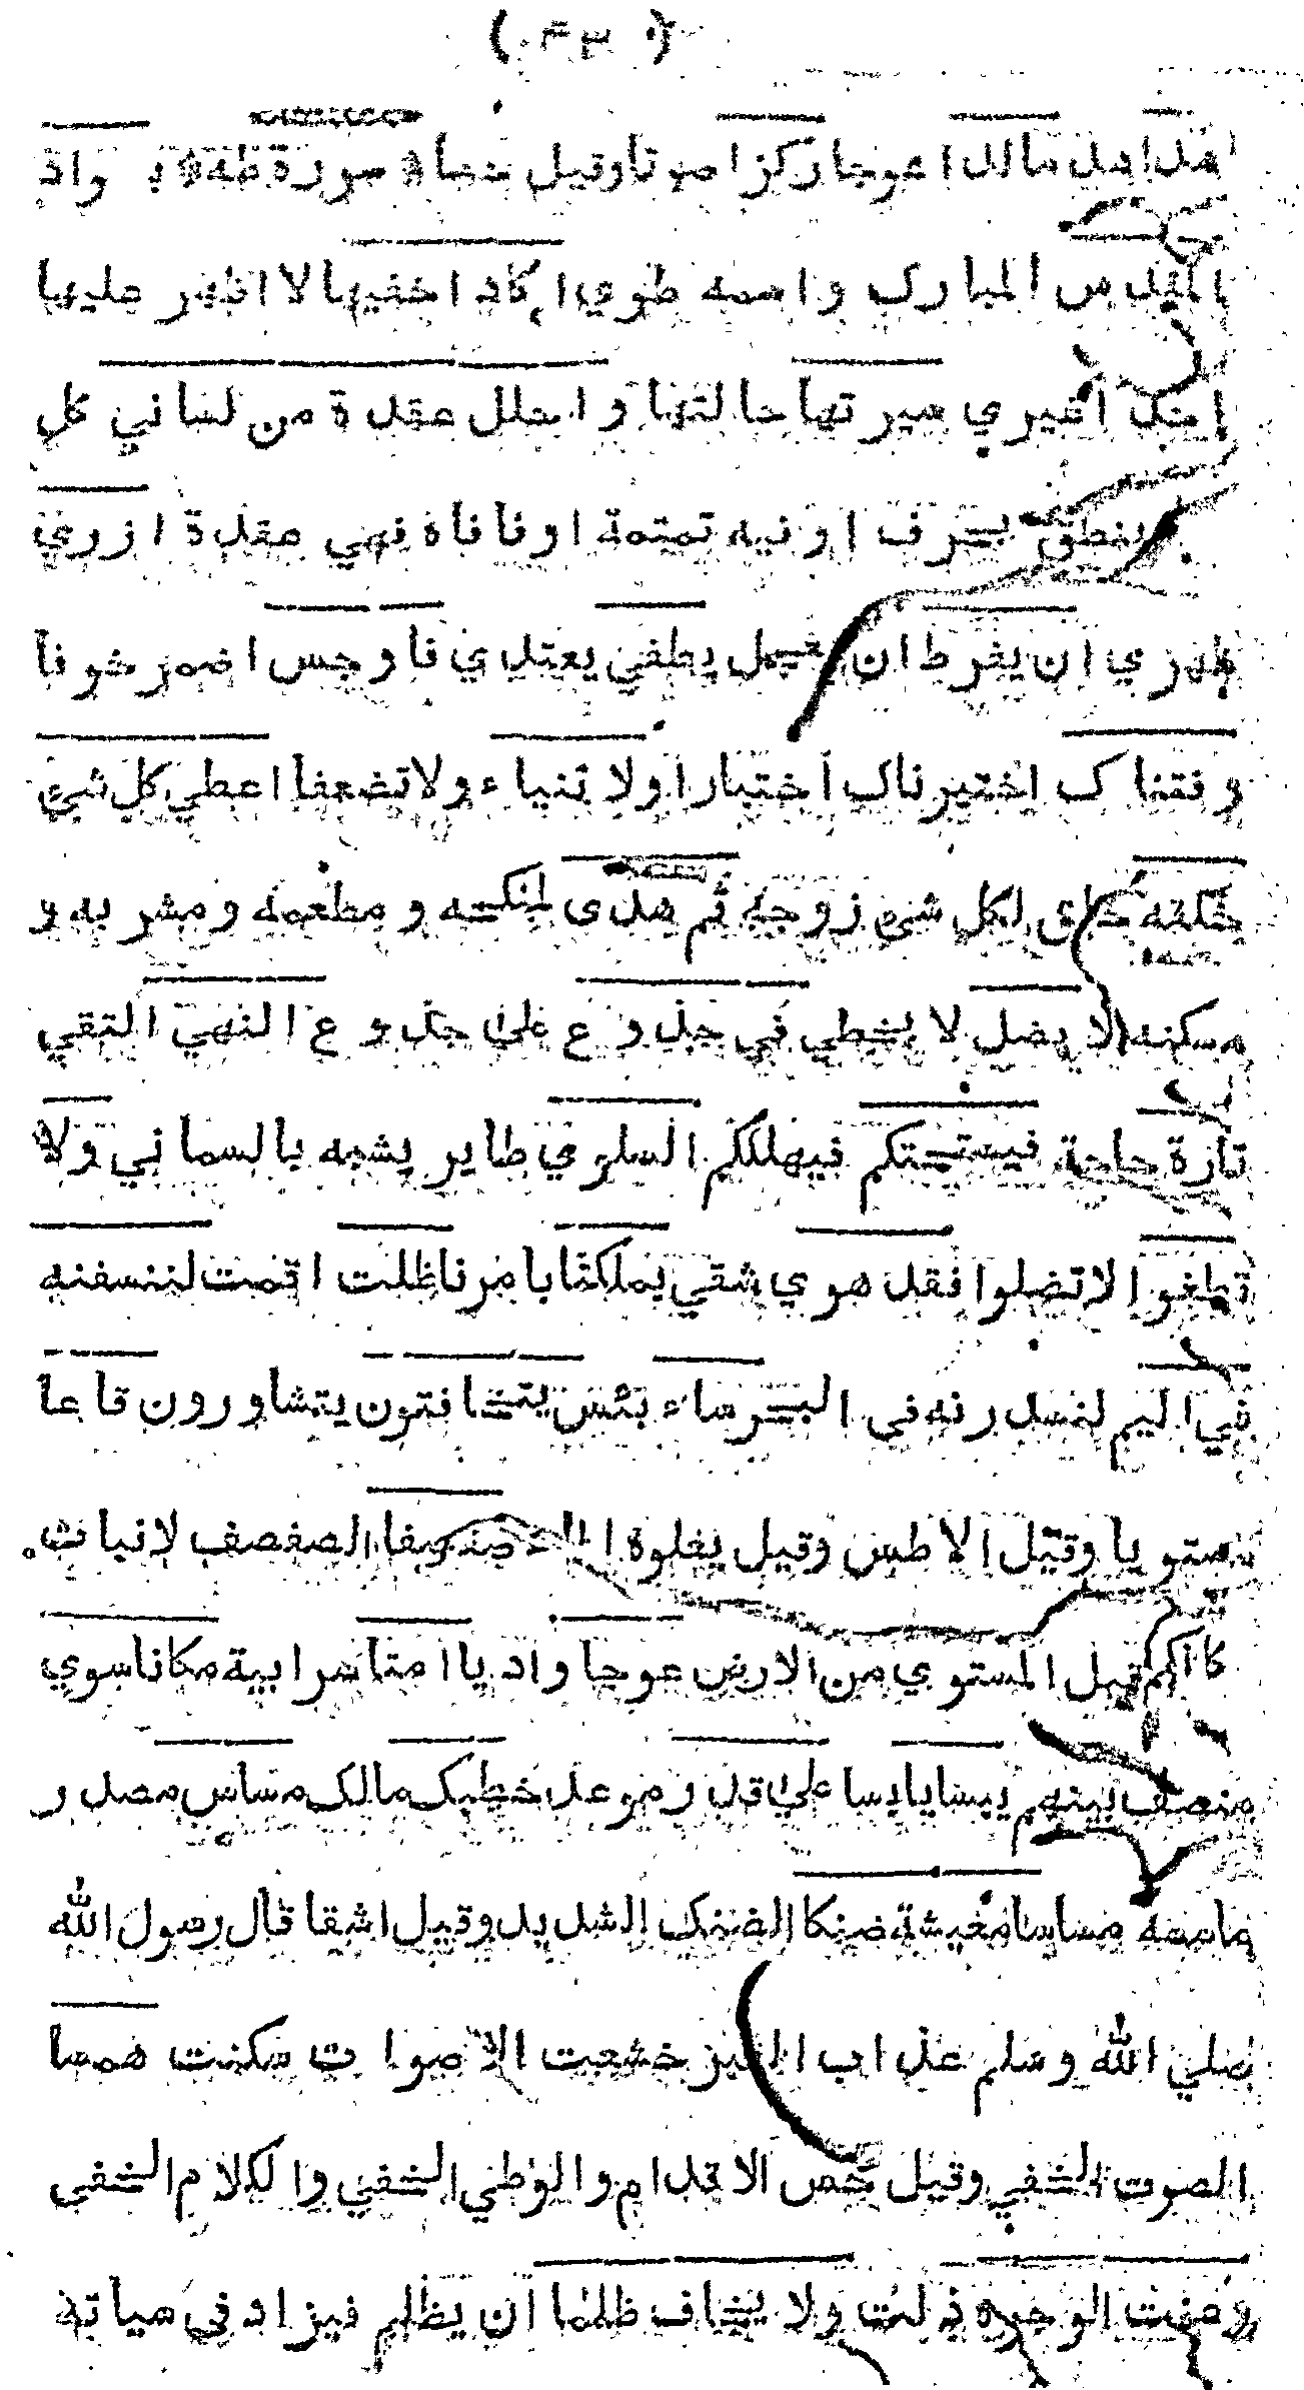 ( ٤٣ )
هدا مالدا عوجا ركزا صوتا وقيل خفيا سورة طه بواد
المقدس المبارك واسمه طوى اكاد اخفيها لا اظهر عليها
احدا غيري سيرتها حالتها واحلل عقدة من لساني كل
ينطق بحرف او فيه تمتمة او فافاة فهي عقدة ازري
ظهري ان يفرط ان يعجل يطغي يعتدي فاوجس اضمر خوفا
وفتناك اختبرناك اختبارا ولا تنياء ولا تضعفا اعطي كل شئ
خلقه خلق لكل شئ زوجه ثم هدى لمنكحه ومطعمه ومشربه و
مسكنه لا يضل لا يخطي في جذوع علي جذوع النهي التقي
تارة حاجة فيسحتكم فيهلككم السلوي طاير يشبه بالسماني ولا
تطغوا لا تضلوا فقد هوي شقي بملكنا بامرنا ظلت اقمت لننسفنه
في اليم لنذرينه في البحر ساء بئس يتخافتون يتشاورون قاعا
مستويا وقيل الاطس وقيل يعلوه الماء صفصفا الصفصف لا نبات
قيل المستوي من الارض عوجا واديا امتا رابية مكانا سوي
منصف بينهم يبسا يابسا علي قدر موعد خطبك مالك مساس مصدر
ماسه مساسا معيشة ضنكا الضنك الشديد وقيل الشقا قال رسول الله
صلي الله وسلم عذاب القبر خشعت الاصوات سكنت همسا
الصوت الخفي وقيل حس الاقدام والوطي الخفي والكلام الخفي
وعنت الوجوه ذلت ولا يخاف ظلما ان يظلم فيزاد في سياته